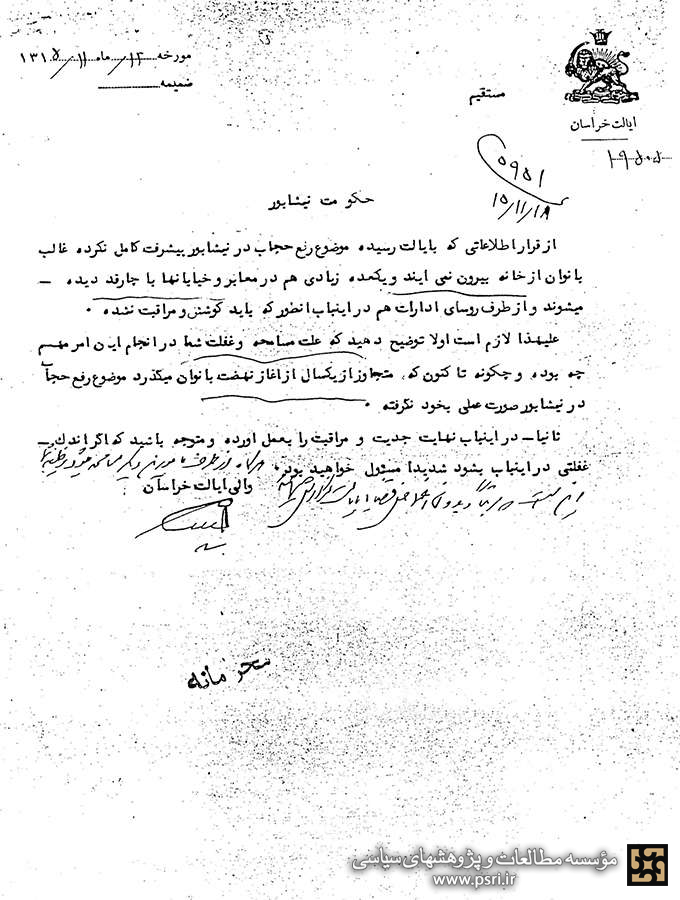 مورخه ۱۲/ماه ۱۱/ ۱۳۱۵
ضمیمه
مستقیم
ایالت خراسان
۱۹۸۰۸
۵۹۵۱
۱۵/۱۱/۱۸
حکومت نیشابور
از قرار اطلاعاتی که بایالت رسیده موضوع رفع حجاب در نیشابور پیشرفت کامل نکرده غالب
بانوان از خانه بیرون نمی ایند و یکعده زیادی هم در معابر و خیابانها با چارقد دیده –
میشوند و از طرف روسای ادارات هم در اینباب انطور که باید کوشش و مراقبت نشده .
علیهذا لازم است اولا توضیح دهید که علت مسامحه و غفلت شما در انجام این امر مهم
چه بوده و چگونه تا کنون که متجاوز از یکسال از اغاز نهضت بانوان میگذرد موضوع رفع حجاب
در نیشابور صورت عملی بخود نگرفته .
ثانیا – در اینباب نهایت جدیت و مراقبت را بعمل اورده و متوجه باشید که اگر اندک –
غفلتی در اینباب بشود شدیدا مسئول خواهید بود .
والی ایالت خراسان
محرمانه
مؤسسه مطالعات و پژوهشهای سیاسی
www.psri.ir